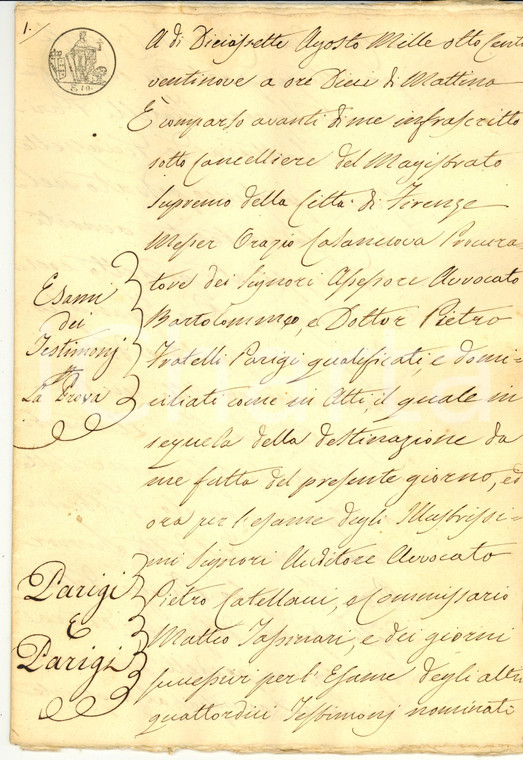 1.
A dì Diciassette Agosto Mille otto Cento
ventinove a ore Dieci di Mattina
È comparso avanti di me infrascritto
sotto Cancelliere del Magistrato
Supremo della Città di Firenze
Messer Orazio Casanuova Procura-
tore dei Signori Assessore Avvocato
Bartolommeo, e Dottor Pietro
Fratelli Parigi qualificati e domi=
ciliati come in Atti, il quale in
sequela della destinazione da
me fatta del presente giorno, ed
ora per l'esame degli Illustrissi=
mi Signori Auditore Avvocato
Pietro Catellacci, e Commissario
Matteo, e dei giorni
successivi per l'Esame degli altri
quattordici Testimonj nominati
Esami
dei
Testimonj
La Prova
Parigi
E
Parigi